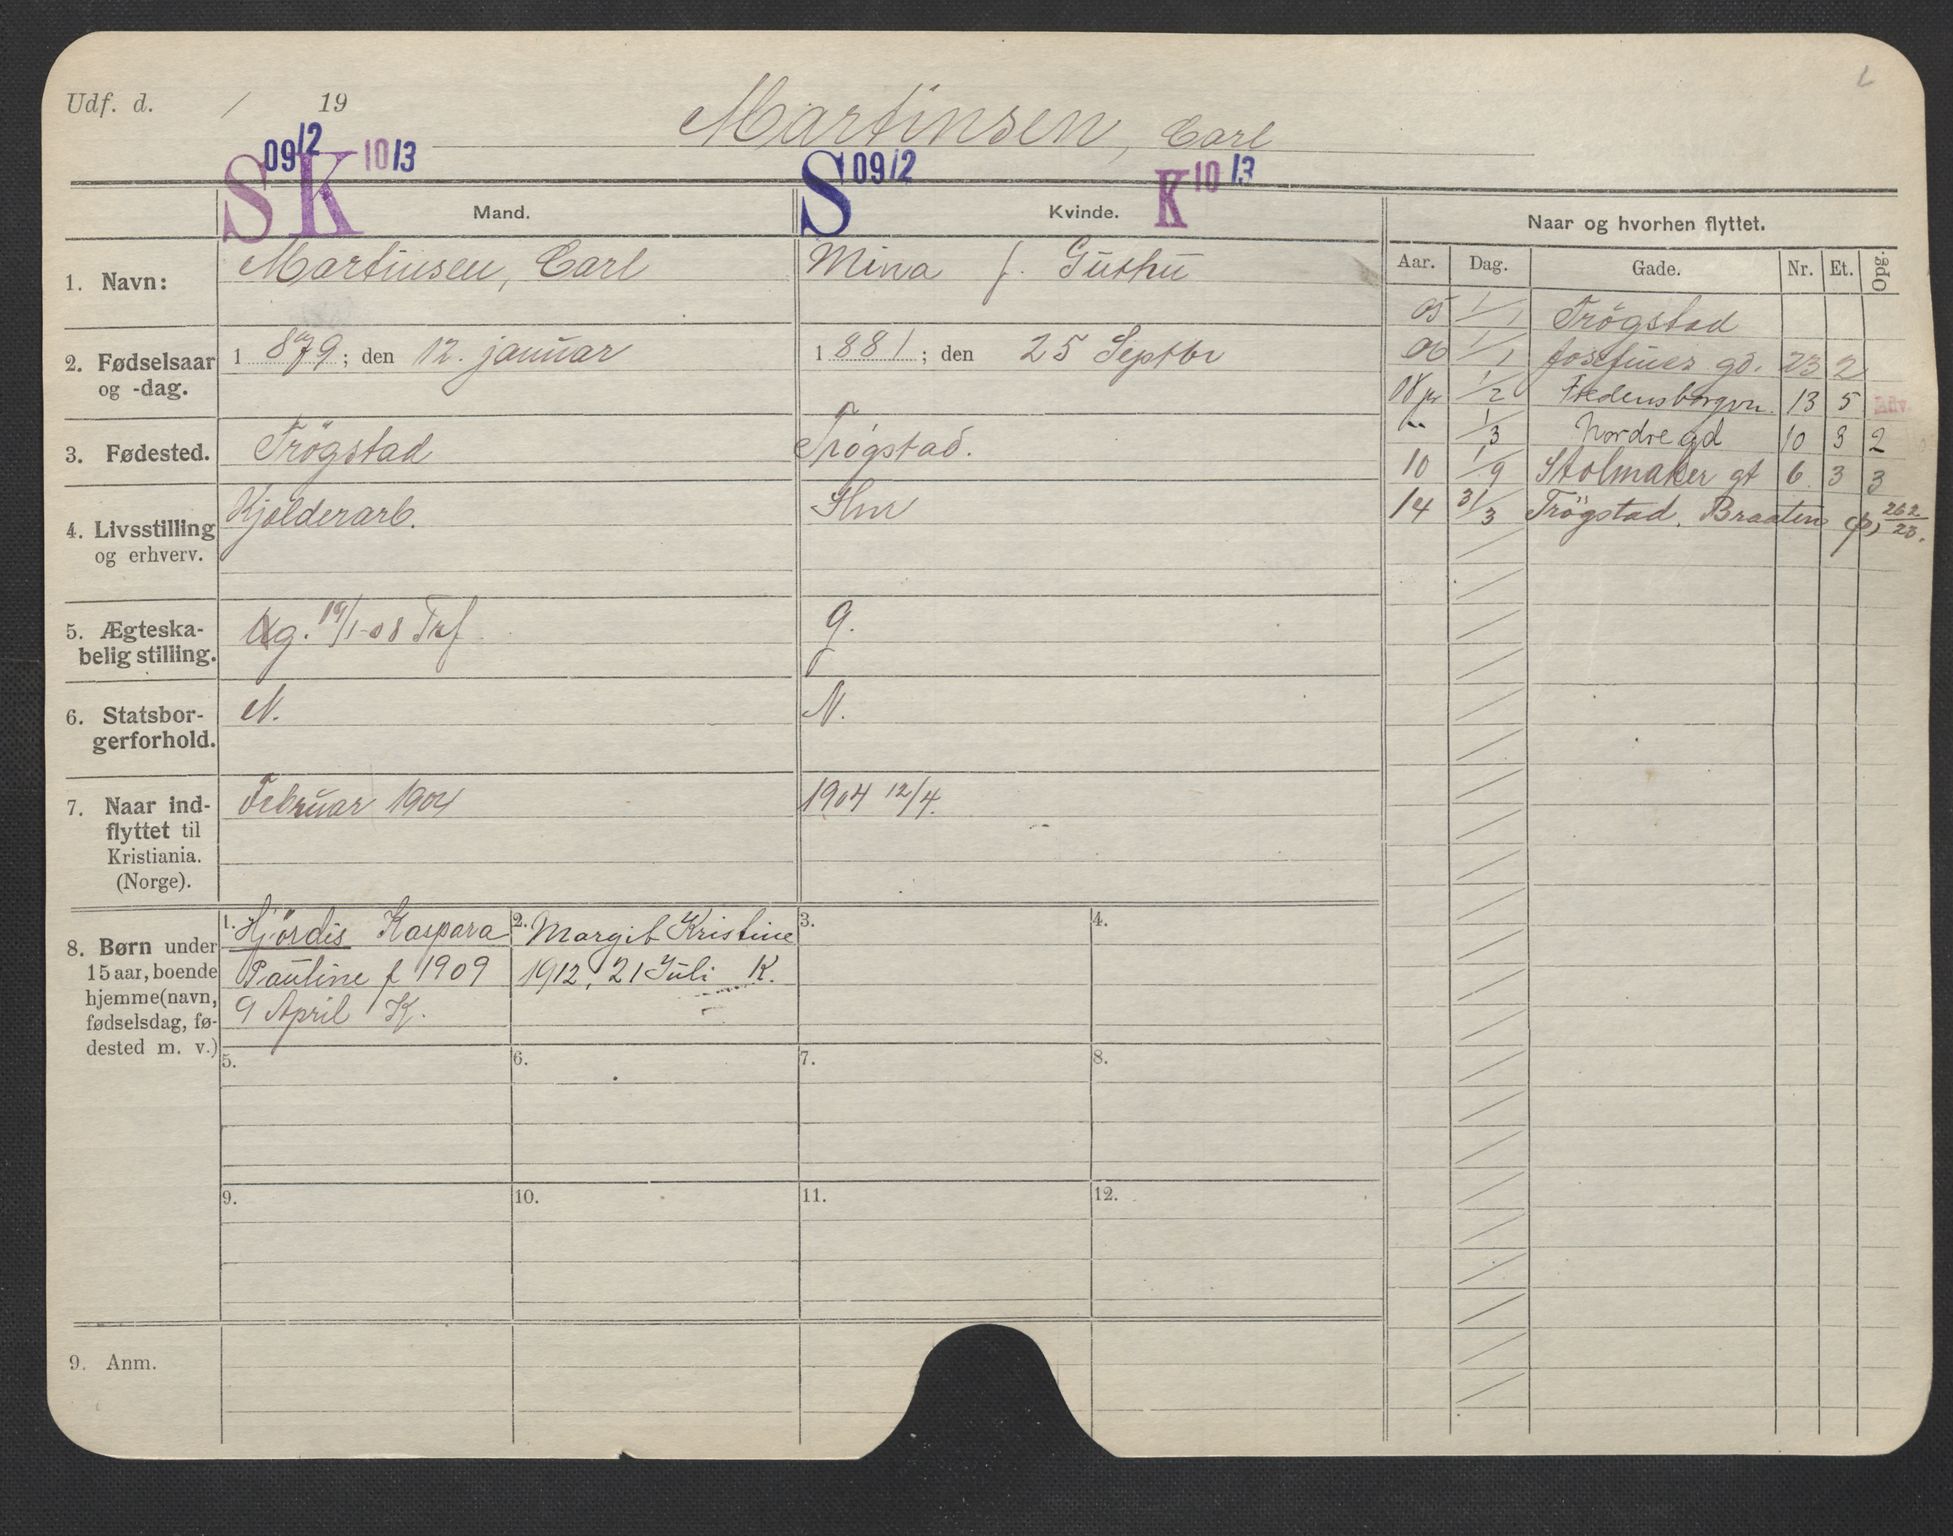 Udf. d. / 19
Martinsen, Carl
S 09/2 K 10/3
S 09/2 K 10/3
Mand.
Kvinde.
Naar og hvorhen flyttet.
Aar. Dag. Gade. Nr. Et. Opg.
1. Navn: Martinsen, Carl
Mina f. Guthu
2. Fødselsaar og -dag.
1 879; den 12. januar
1 881; den 25 Septbr
3. Fødested. Trögstad
Trøgstad.
4. Livsstilling og erhverv.
Kjelderarb.
Hmr
5. Ægteska-
belig stilling.
Ug. 19/1-08 Trf
g.
6. Statsbor-
gerforhold.
N.
N.
7. Naar ind-
flyttet til
Kristiania.
(Norge).
Februar 1904
1904 12/4.
8. Børn under
15 aar, boende
hjemme (navn,
fødselsdag, fø-
dested m. v.)
1. Hjördis Kaspara
Pauline f 1909
9 April K.
2. Margit Kristine
1912, 21 Juli K.
3.
4.
5.
6.
7.
8.
9.
10.
11.
12.
9. Anm.
05 1/1 Trögstad
06 1/1 Josefines gd. 23 2
08 1/2 Fredensborgvn. 13 5
1/3 Nordre gd 10 3 2
10 1/9 Stolmaker gt 6 3 3
14 31/3 Trögstad. Braaten 262/23.